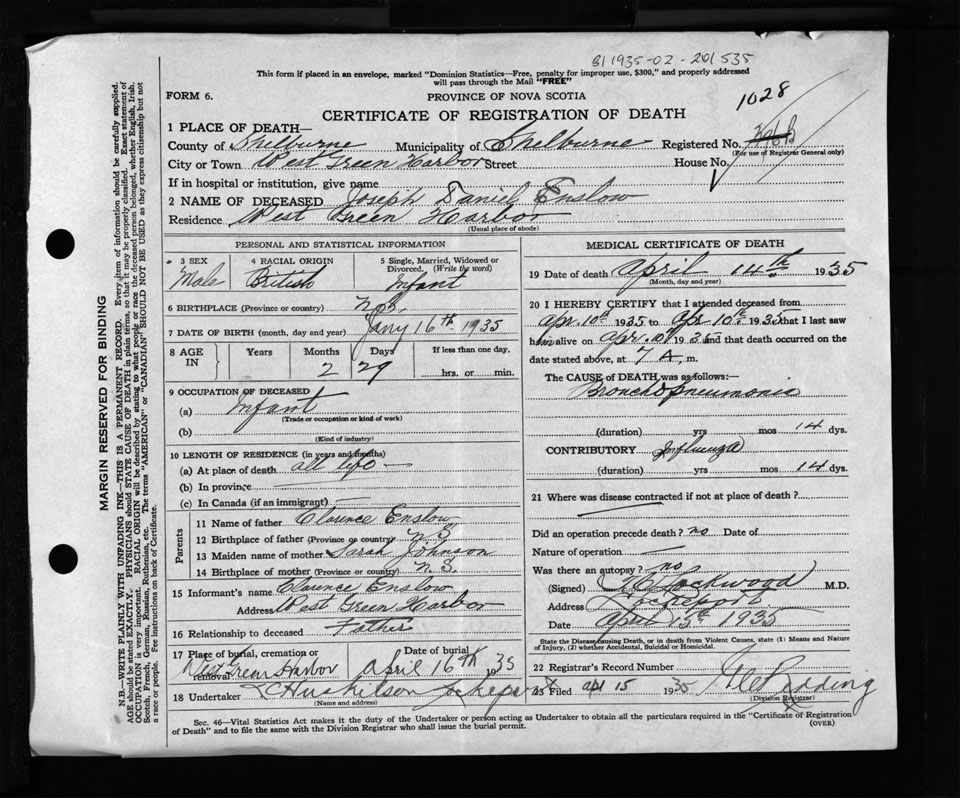 B1 1935-02-201535
This form if placed in an envelope, marked "Dominion Statistics—Free, penalty for improper use, $300," and properly addressed
will pass through the Mail "FREE"
FORM 6.
PROVINCE OF NOVA SCOTIA
1028
CERTIFICATE OF REGISTRATION OF DEATH
1 PLACE OF DEATH—
County of Shelburne Municipality of Shelburne Registered No.
(For use of Registrar General only)
City or Town West Green Harbor Street House No.
If in hospital or institution, give name
2 NAME OF DECEASED Joseph Daniel Enslow
Residence West Green Harbor
(Usual place of abode)
PERSONAL AND STATISTICAL INFORMATION
3 SEX 4 RACIAL ORIGIN 5 Single, Married, Widowed or Divorced. (Write the word)
Male British Infant
6 BIRTHPLACE (Province or country) N.S.
7 DATE OF BIRTH (month, day and year) Jany 16th 1935
8 AGE IN Years Months Days If less than one day,
2 29 hrs. or min.
9 OCCUPATION OF DECEASED
(a) Infant
(Trade or occupation or kind of work)
(b)
(Kind of industry)
10 LENGTH OF RESIDENCE (in years and months)
(a) At place of death all life —
(b) In province
(c) In Canada (if an immigrant) —
Parents
11 Name of father Clarence Enslow
12 Birthplace of father (Province or country) N.S.
13 Maiden name of mother Sarah Johnson
14 Birthplace of mother (Province or country) N.S.
15 Informant's name Clarence Enslow
Address West Green Harbor
16 Relationship to deceased Father
17 Place of burial, cremation or removal Date of burial
West Green Harbor April 16th, 35
18 Undertaker Lockeport
(Name and address)
MEDICAL CERTIFICATE OF DEATH
19 Date of death April 14th 1935
(Month, day and year)
20 I HEREBY CERTIFY that I attended deceased from
Apr. 10th 1935 to Apr 10th, 1935, that I last saw
him alive on Apr. 10th 1935 and that death occurred on the
date stated above, at 7 A. m.
The CAUSE of DEATH was as follows:—
Broncho pneumonia
(duration) yrs mos 14 dys.
CONTRIBUTORY Influenza
(duration) yrs mos 14 dys.
21 Where was disease contracted if not at place of death?
Did an operation precede death? no Date of
Nature of operation —
Was there an autopsy? no
(Signed) Lockwood M.D.
Address Lockeport
Date April 15th 1935
State the Disease causing Death, or in death from Violent Causes, state (1) Means and Nature
of Injury, (2) whether Accidental, Suicidal or Homicidal.
22 Registrar's Record Number
23 Filed apl 15 1935 Redding
Division Registrar
Sec. 46—Vital Statistics Act makes it the duty of the Undertaker or person acting as Undertaker to obtain all the particulars required in the "Certificate of Registration
of Death" and to file the same with the Division Registrar who shall issue the burial permit.
(OVER)
MARGIN RESERVED FOR BINDING
N.B.—WRITE PLAINLY WITH UNFADING INK—THIS IS A PERMANENT RECORD. Every item of information should be carefully supplied.
AGE should be stated EXACTLY. PHYSICIANS should STATE CAUSE OF DEATH in plain terms, so that it may be properly classified. Exact statement of
OCCUPATION is very important. RACIAL ORIGIN will be described by stating to what people or race the deceased person belonged, whether English, Irish,
Scotch, French, German, Russian, Ruthenian, etc. The terms "AMERICAN" or "CANADIAN" SHOULD NOT BE USED as they express citizenship but not
a race or people. See instructions on back of Certificate.